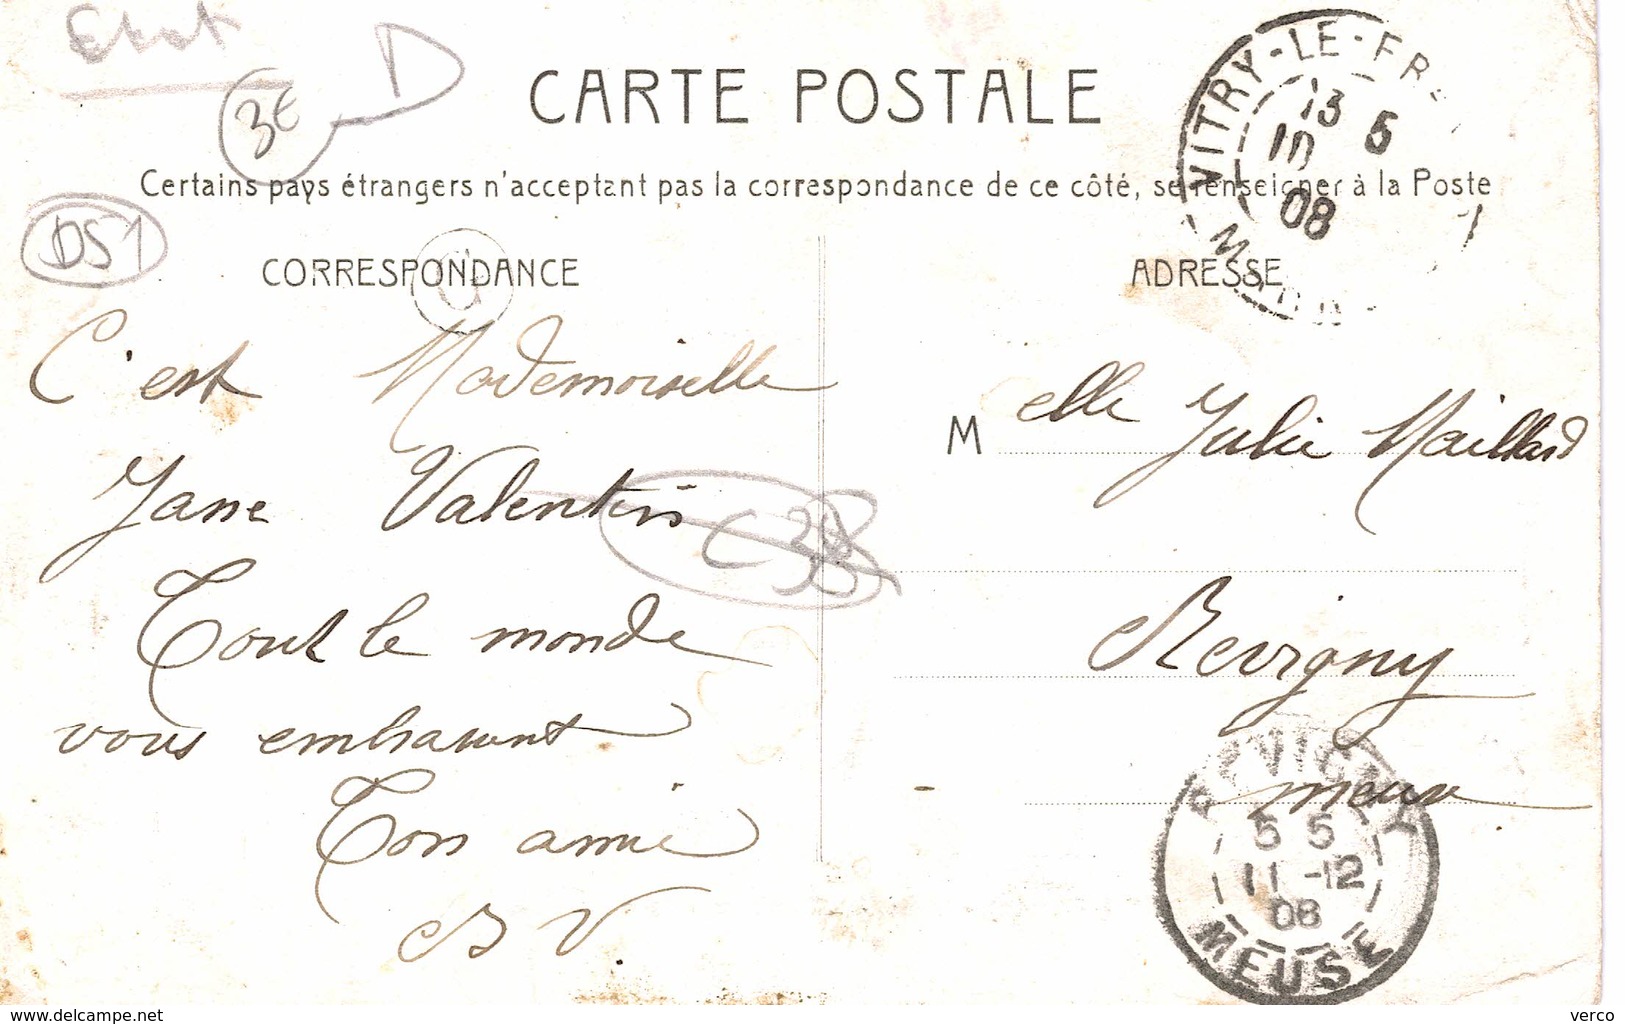 Etat
3€
D
CARTE POSTALE
Certains pays étrangers n'acceptant pas la correspondance de ce côté, se renseigner à la Poste
VITRY-LE-FR
13 5
10
08
DS1
CORRESPONDANCE
ADRESSE
C'est Mademoiselle
Jane Valentin
Tout le monde
vous embrassent
Ton amie
B V
M elle Julie Maillard
Revigny
Meuse
REVIGNY
5 5
11 -12
08
MEUSE
www.delcampe.net
verco